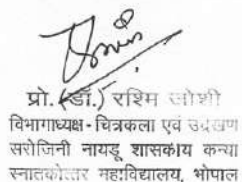 प्रो. (डॉ.) रश्मि जोशी
विभागाध्यक्ष - चित्रकला एवं
सरोजिनी नायडू शासकीय कन्या
स्नातकोत्तर महाविद्यालय, भोपाल